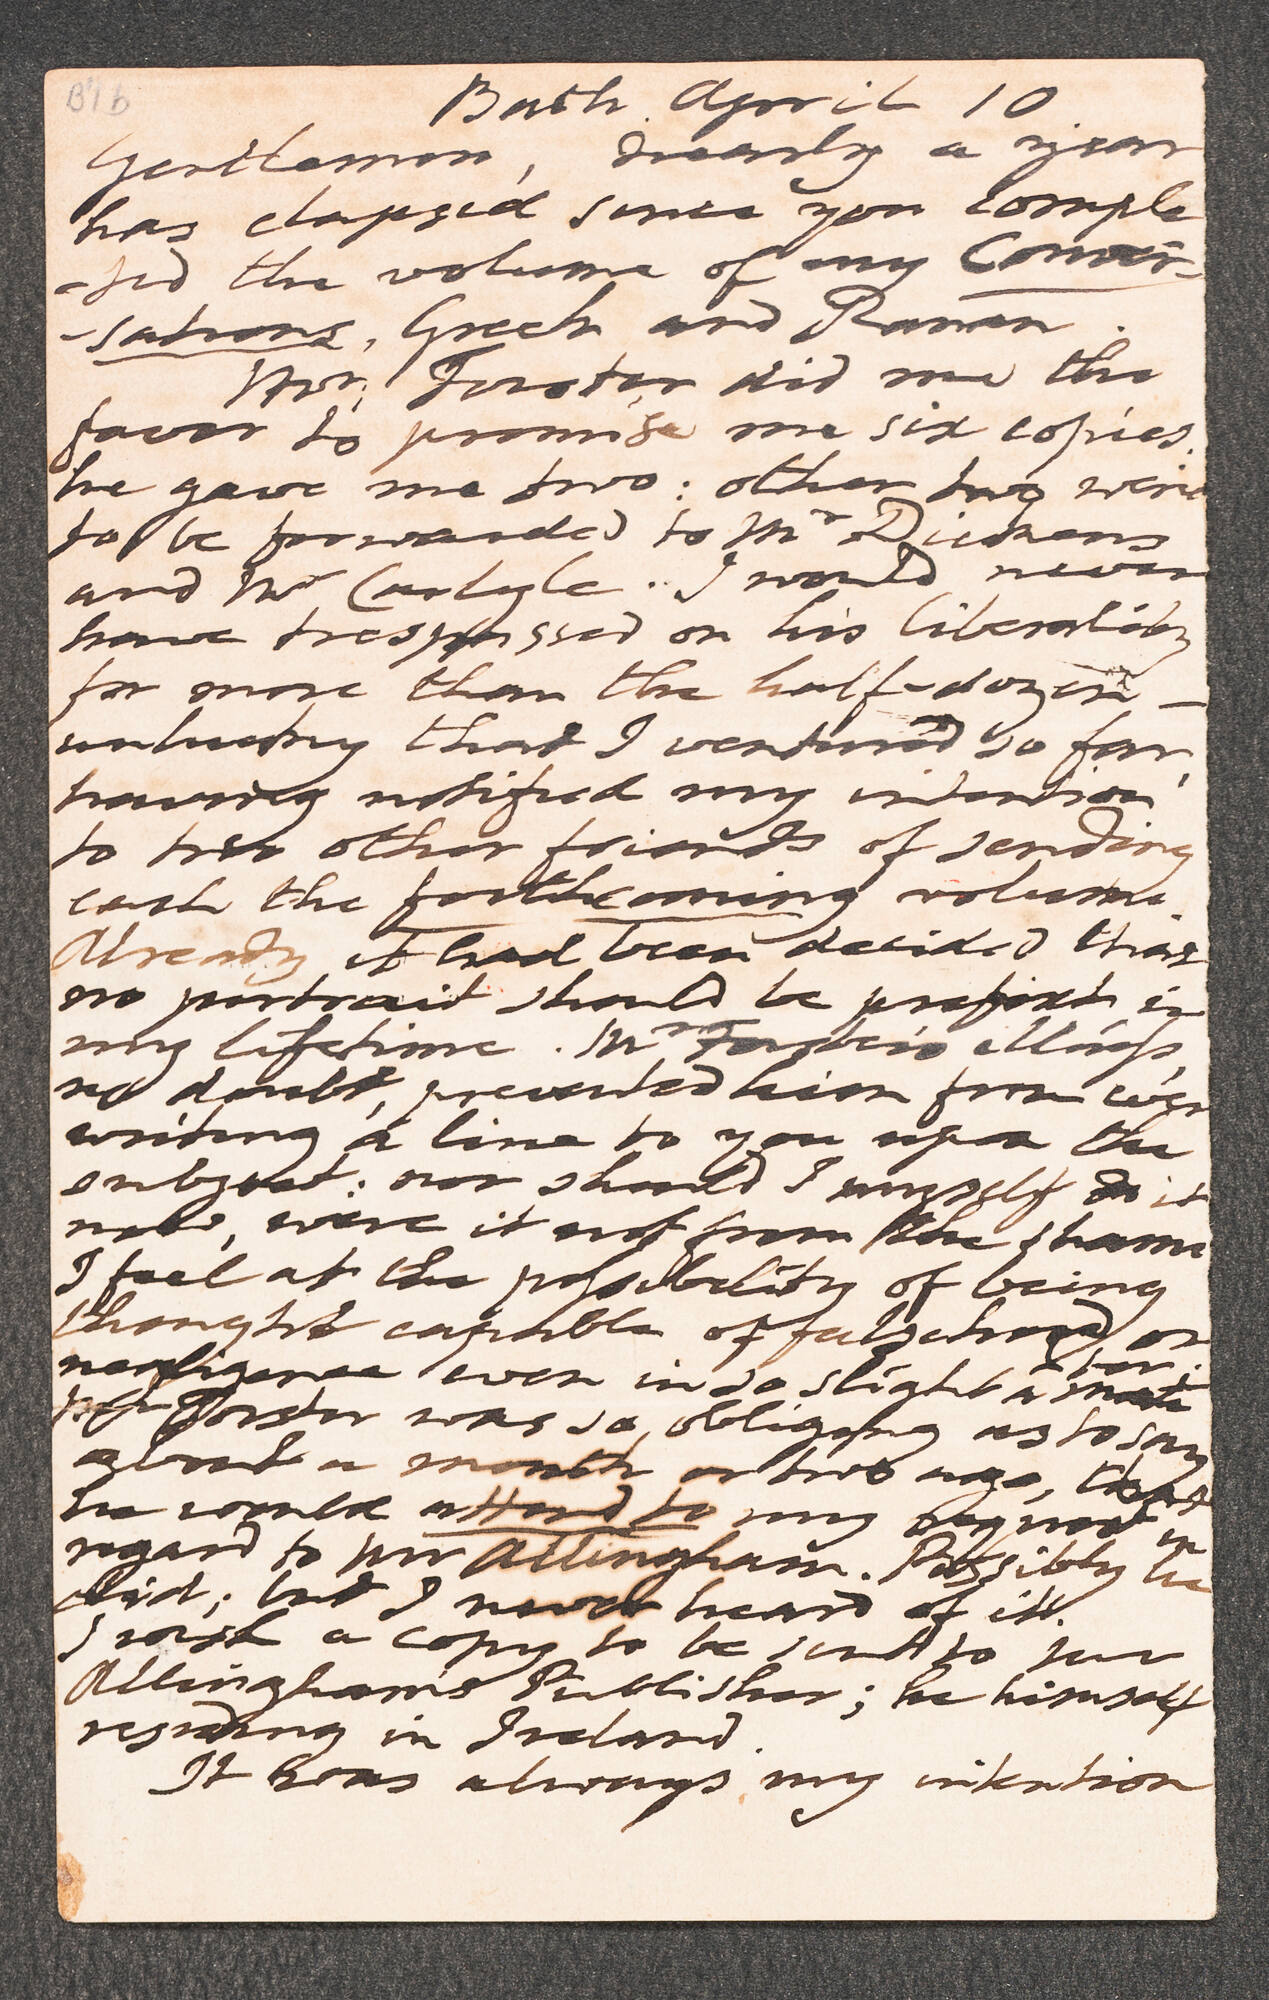 B7b
Bath April 10
Gentlemen, nearly a year
has elapsed since you comple
-ted the volume of my Conver-
-sations, Greek and Roman.
Mr. Forster did me the
favor to promise me six copies.
he gave me two: other two were
to be forwarded to Mr Dickens
and Mr Carlyle. I would never
have trespassed on his liberality
for more than the half-dozen —
unlucky that I ventured so far,
having notified my intention
to two other friends of sending
each the forthcoming volume.
Already it had been decided that
no portrait should be prefixt in
my lifetime. Mr Forster's illness,
no doubt, prevented him from ever
writing a line to you upon the
subject: nor should I myself do it
now, were it not from the shame
I feel at the possibility of being
thought capable of falsehood or
negligence even in so slight a matter.
Mr Forster was so obliging as to say
about a month or two ago, that
he would attend to my request in
regard to Mr Allingham. Possibly he
did; but I never heard of it.
I wish a copy to be sent to Mr
Allingham's Publisher; he himself
residing in Ireland.
It was always my intention